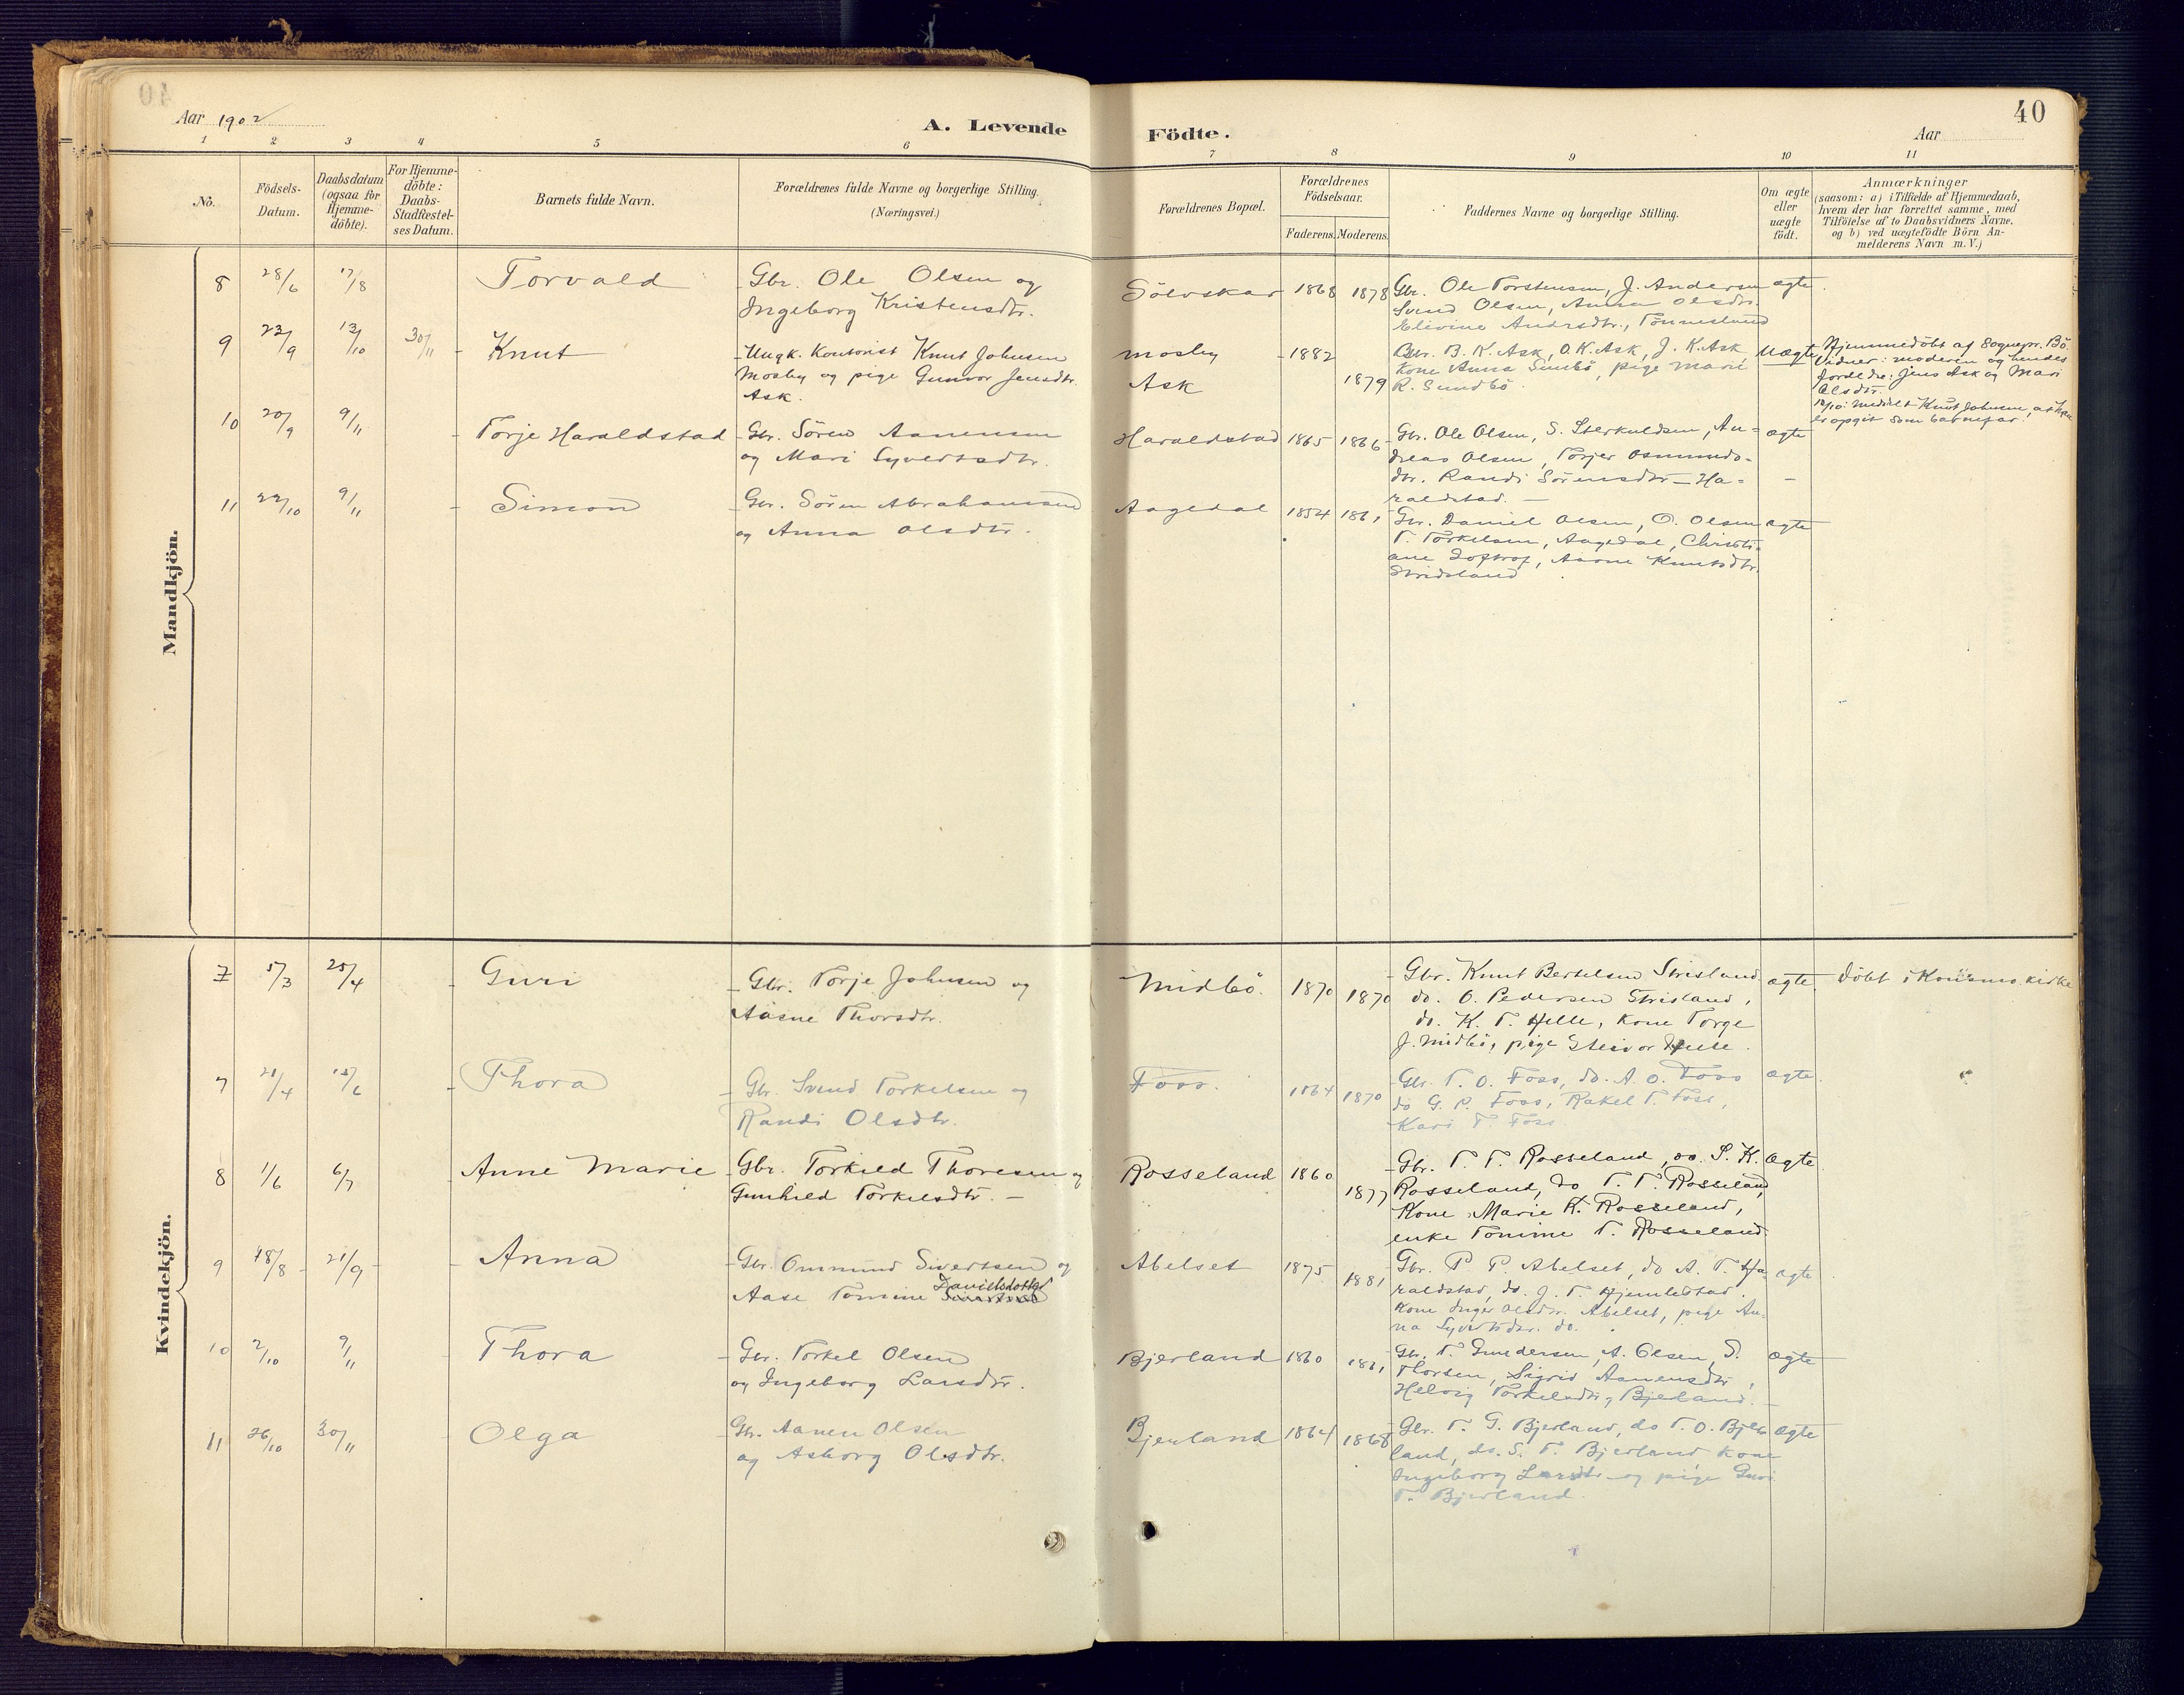 40
Aar 1902
A. Levende Födte.
Aar
1 2 3 4 5 6 7 8 9 10 11
No.
Födsels-Datum.
Daabsdatum (ogsaa for Hjemme-döbte).
For Hjemme-döbte: Daabs-Stadfestel-ses Datum.
Barnets fulde Navn.
Forældrenes fulde Navne og borgerlige Stilling.
(Næringsvei.)
Forældrenes Bopæl.
Forældrenes Födselsaar.
Faderens. Moderens.
Faddernes Navne og borgerlige Stilling.
Om ægte eller uægte födt.
Anmærkninger
(saasom: a) i Tilfælde af Hjemmedaab,
hvem der har forrettet samme, med
Tilföielse af to Daabsvidners Navne,
og b) ved uægtefödte Börn An-
melderens Navn m. V.)
Mandkjön.
8 28/6 17/8 Torvald Gbr. Ole Olsen og Sölvskar 1868 1878 Gbr. Ole Torstensen, J. Andersen ægte.
Ingeborg Kristensdtr. Svend Olsen, Anna Olsdtr.
Elivine Andrsdtr., Tönnesland
9 23/9 13/10 30/11 - Knut - Ungk. Kontorist Knut Johnsen Mosby - 1882 Gbr. B. K. Ask, O. K. Ask, J. K. Ask, Uægte Hjemmedöbt af Sognepr. Bö.
Mosby og pige Gunvor Jensdtr. Ask 1879 Kone Anna Sundbö, pige Marie Vidner: moderen og hendes
Ask. R. Sundbö. foreldre: Jens Ask og Mari
Olsdtr.
18/10: meddelt Knut Johnsen, at han
er opgit som barnefar.
10 20/9 9/11 - Torje Haraldstad - Gbr. Sören Aanensen Haraldstad 1865 1866 Gbr. Ole Olsen, S. Sterkuldsen, An- ægte
og Mari Syvertsdtr. dreas Olsen, Torjer Osmunds-
dtr. Randi Sörensdtr - Ha-
raldstad. -
11 22/10 9/11 - Simon - Gbr. Sören Abrahamsen Aagedal 1854 1861 Gbr. Daniel Olsen, O. Olsen ægte
og Anna Olsdtr. T. Torkelsen, Aagedal, Christi-
ane, Aasne Knutsdtr.
Stridsland
Kvindekjön.
7 5/3 25/4 - Guri - Gbr. Torje Johnsen og Midbö. 1870 1870 - Gbr. Knut Bertelsen Strisland ægte Döbt i Konsmo kirke
Aasne Thorsdtr. do. O. Pedersen Strisland,
do. K. T. Helle, Kone Torge
J. Midbö, pige Steivor Helle.
7 21/4 15/6 - Thora - Gbr. Svend Torkelsen og Foss. 1864 1870 Gbr. T. O. Foss, do. A. O. Foss ægte
Randi Olsdtr. do G. P. Foss, Rakel T. Foss,
Kari T. Foss.
8 1/6 6/7 Anne Marie - Gbr. Torkild Thoresen og Rosseland 1860 1877 - Gbr. T. T. Rosseland, do. S. K. ægte
Gunhild Torkilsdtr. - Rosseland, do T. T. Rosseland,
Kone Marie K. Rosseland,
enke Tomine T. Rosseland.
9 18/8 21/9 - Anna - Gbr. Ommund Sivertsen og Abelset 1875 1881 Gbr. P. P. Abelset, do A. T. Ha- ægte
Aase Tomine Danielsdotter raldstad, do. J. T. Hjemlestad.
Kone Inger Olsdtr. Abelset, pige An-
na Syvertsdtr. do.
10 2/10 9/11 Thora - Gbr. Torkel Olsen Bjerland 1860 1861 Gbr. T. Gundersen, A. Olsen, S. ægte
og Ingeborg Larsdtr. Thorsen, Sigrid Aanensdtr,
Helvig Torkelsdtr, Bjerland.
11 26/10 30/11 Olga Gbr. Aanen Olsen Bjerland 1864 1868 - Gbr. T. G. Bjerland, do T. O. Bjer- ægte
og Asborg Olsdtr. land, do. S. T. Bjerland Kone
Ingeborg Larsdtr og pige Guri
T. Bjerland.